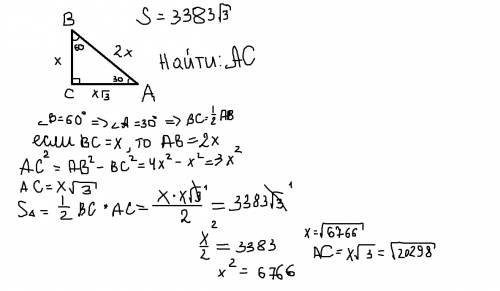 B
S = 3383√3
60
2x
Найти: AC
x
30
C
x√3
A
∠B=60° => ∠A=30° => BC=½AB
если BC=x, то AB=2x
AC²=AB²-BC²=4x²-x²=3x²
AC=x√3
S△ = ½ BC * AC = x·x√3/2 = 3383√3
1
1
x²/2 = 3383
x² = 6766
x=√6766
AC=x√3=√20298